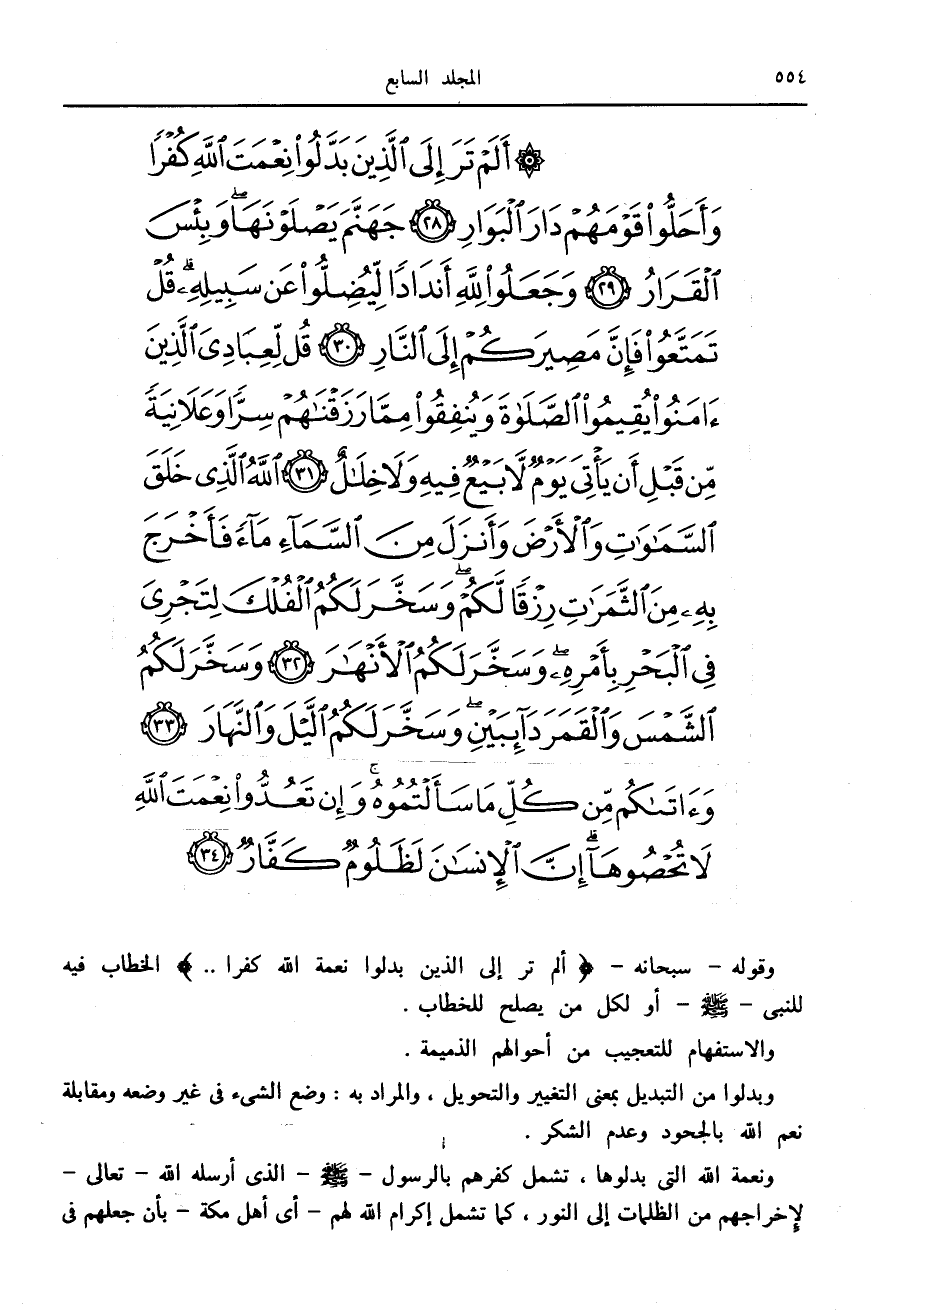 ٥٥٤ المجلد السابع
۞ أَلَمْ تَرَ إِلَى ٱلَّذِينَ بَدَّلُوا۟ نِعْمَتَ ٱللَّهِ كُفْرًا
وَأَحَلُّوا۟ قَوْمَهُمْ دَارَ ٱلْبَوَارِ ﴿٢٨﴾ جَهَنَّمَ يَصْلَوْنَهَا ۖ وَبِئْسَ
ٱلْقَرَارُ ﴿٢٩﴾ وَجَعَلُوا۟ لِلَّهِ أَندَادًا لِّيُضِلُّوا۟ عَن سَبِيلِهِۦ ۗ قُلْ
تَمَتَّعُوا۟ فَإِنَّ مَصِيرَكُمْ إِلَى ٱلنَّارِ ﴿٣٠﴾ قُل لِّعِبَادِىَ ٱلَّذِينَ
ءَامَنُوا۟ يُقِيمُوا۟ ٱلصَّلَوٰةَ وَيُنفِقُوا۟ مِمَّا رَزَقْنَـٰهُمْ سِرًّا وَعَلَانِيَةً
مِّن قَبْلِ أَن يَأْتِىَ يَوْمٌ لَّا بَيْعٌ فِيهِ وَلَا خِلَـٰلٌ ﴿٣١﴾ ٱللَّهُ ٱلَّذِى خَلَقَ
ٱلسَّمَـٰوَٰتِ وَٱلْأَرْضَ وَأَنزَلَ مِنَ ٱلسَّمَآءِ مَآءً فَأَخْرَجَ
بِهِۦ مِنَ ٱلثَّمَرَٰتِ رِزْقًا لَّكُمْ ۖ وَسَخَّرَ لَكُمُ ٱلْفُلْكَ لِتَجْرِىَ
فِى ٱلْبَحْرِ بِأَمْرِهِۦ ۖ وَسَخَّرَ لَكُمُ ٱلْأَنْهَـٰرَ ﴿٣٢﴾ وَسَخَّرَ لَكُمُ
ٱلشَّمْسَ وَٱلْقَمَرَ دَآئِبَيْنِ ۖ وَسَخَّرَ لَكُمُ ٱلَّيْلَ وَٱلنَّهَارَ ﴿٣٣﴾
وَءَاتَىٰكُم مِّن كُلِّ مَا سَأَلْتُمُوهُ ۚ وَإِن تَعُدُّوا۟ نِعْمَتَ ٱللَّهِ
لَا تُحْصُوهَآ ۗ إِنَّ ٱلْإِنسَـٰنَ لَظَلُومٌ كَفَّارٌ ﴿٣٤﴾
وقوله - سبحانه - ﴿ ألم تر إلى الذين بدلوا نعمة الله كفرا .. ﴾ الخطاب فيه
للنبى - ﷺ - أو لكل من يصلح للخطاب .
والاستفهام للتعجيب من أحوالهم الذميمة .
وبدلوا من التبديل بمعنى التغيير والتحويل ، والمراد به : وضع الشىء فى غير وضعه ومقابلة
نعم الله بالجحود وعدم الشكر .
ونعمة الله التى بدلوها ، تشمل كفرهم بالرسول - ﷺ - الذى أرسله الله - تعالى -
لإخراجهم من الظلمات إلى النور ، كما تشمل إكرام الله لهم - أى أهل مكة - بأن جعلهم فى